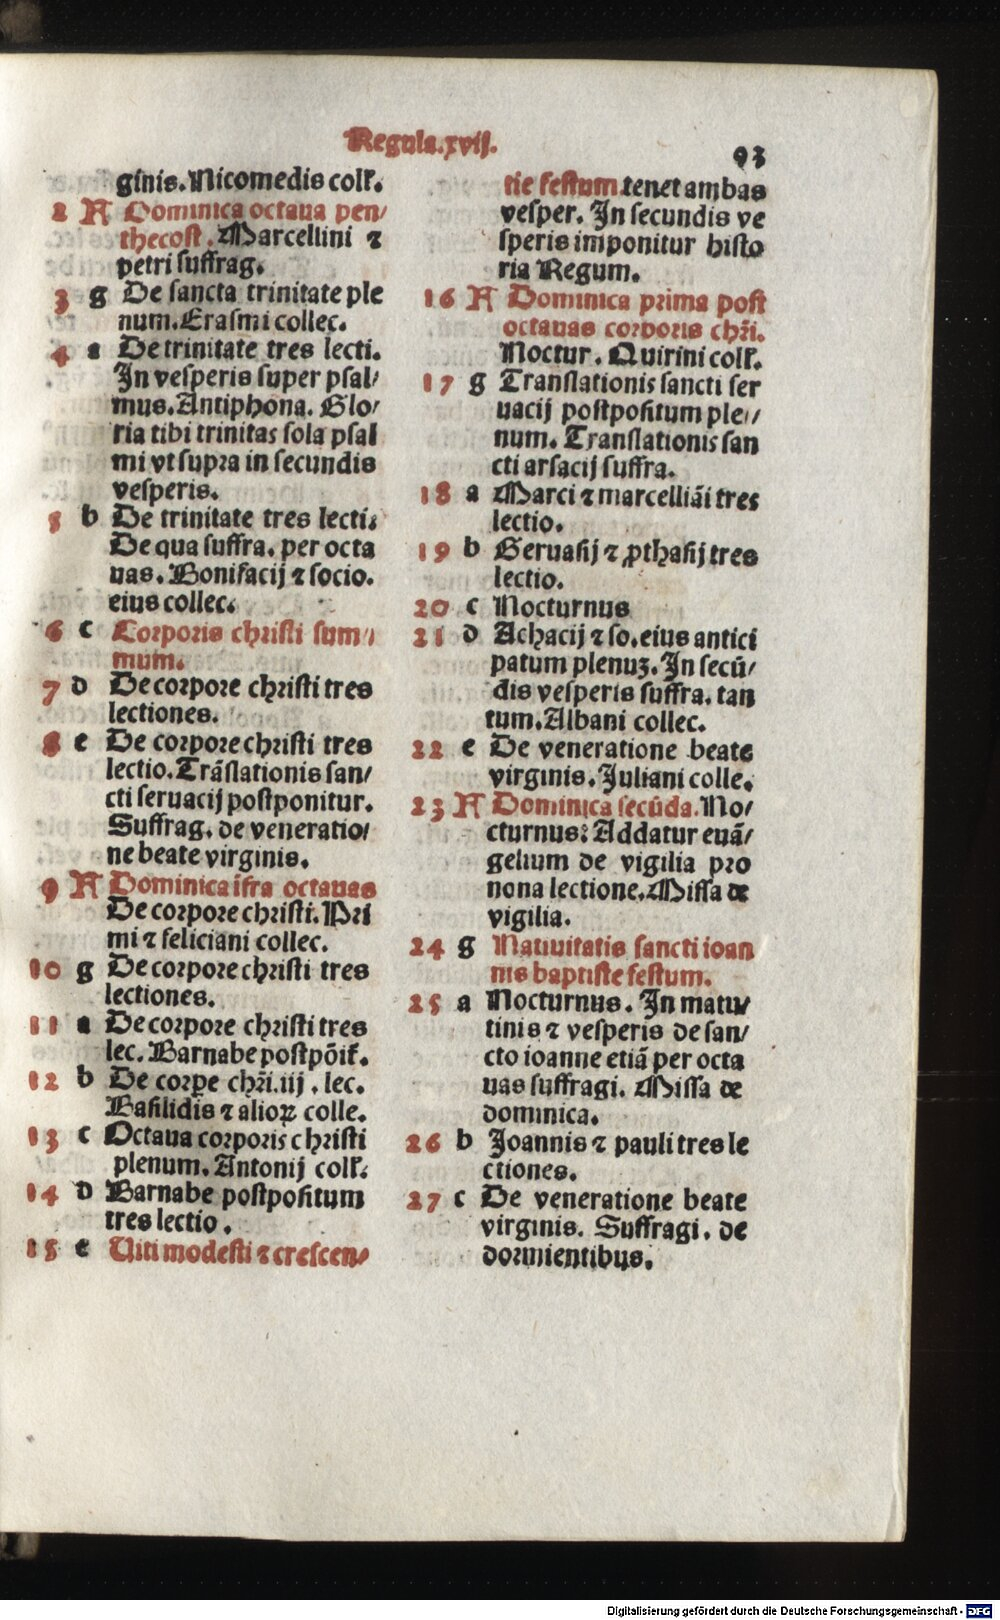 Regula.xvij.
93
ginis. Nicomedis coll̃.
2 A Dominica octaua pen/
thecost. Marcellini ⁊
petri suffrag.
3 g De sancta trinitate ple
num. Erasmi collec.
4 a De trinitate tres lecti.
In vesperis super psal/
mus. Antiphona. Glo/
ria tibi trinitas sola psal
mi vt supra in secundis
vesperis.
5 b De trinitate tres lecti.
De qua suffra. per octa
uas. Bonifacij ⁊ socio.
eius collec.
6 c Corporis christi sum/
mum.
7 d De corpore christi tres
lectiones.
8 e De corpore christi tres
lectio. Trãslationis san/
cti seruacij postponitur.
Suffrag. de veneratio/
ne beate virginis.
9 A Dominica ĩfra octauas
De corpore christi. Pri
mi ⁊ feliciani collec.
10 g De corpore christi tres
lectiones.
11 a De corpore christi tres
lec. Barnabe postpõit̃.
12 b De corpe chr̃i. iij. lec.
Basilidis ⁊ alioꝝ colle.
13 c Octaua corporis christi
plenum. Antonij coll̃.
14 d Barnabe postpositum
tres lectio.
15 e Uiti modesti ⁊ crescen/
tie festum. tenet ambas
vesper. In secundis ve
speris imponitur histo
ria Regum.
16 A Dominica prima post
octauas corporis chr̃i.
Noctur. Quirini coll̃.
17 g Translationis sancti ser
uacij postpositum ple/
num. Translationis san
cti arsacij suffra.
18 a Marci ⁊ marcelliãi tres
lectio.
19 b Geruasij ⁊ ꝓthasij tres
lectio.
20 c Nocturnus
21 d Achacij ⁊ so. eius antici
patum plenuꝫ. In secũ/
dis vesperis suffra. tan
tum. Albani collec.
22 e De veneratione beate
virginis. Juliani colle.
23 A Dominica secũda. No/
cturnus: Addatur euã/
gelium de vigilia pro
nona lectione. Missa de
vigilia.
24 g Natiuitatis sancti ioan
nis baptiste festum.
25 a Nocturnus. In matu/
tinis ⁊ vesperis de san/
cto ioanne etiã per octa
uas suffragi. Missa de
dominica.
26 b Joannis ⁊ pauli tres le
ctiones.
27 c De veneratione beate
virginis. Suffragi. de
dormientibus.
Digitalisierung gefördert durch die Deutsche Forschungsgemeinschaft - DFG